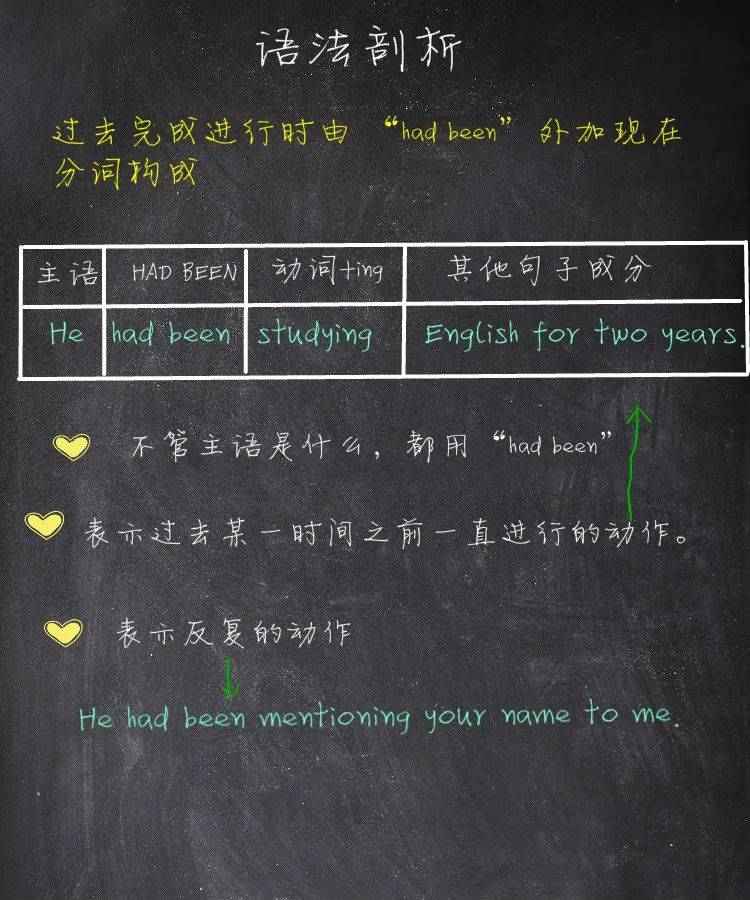 语法剖析
过去完成进行时由 “had been” 外加现在
分词构成
主语 HAD BEEN 动词+ing 其他句子成分
He had been studying English for two years.
不管主语是什么，都用 “had been”
表示过去某一时间之前一直进行的动作。
表示反复的动作
He had been mentioning your name to me.